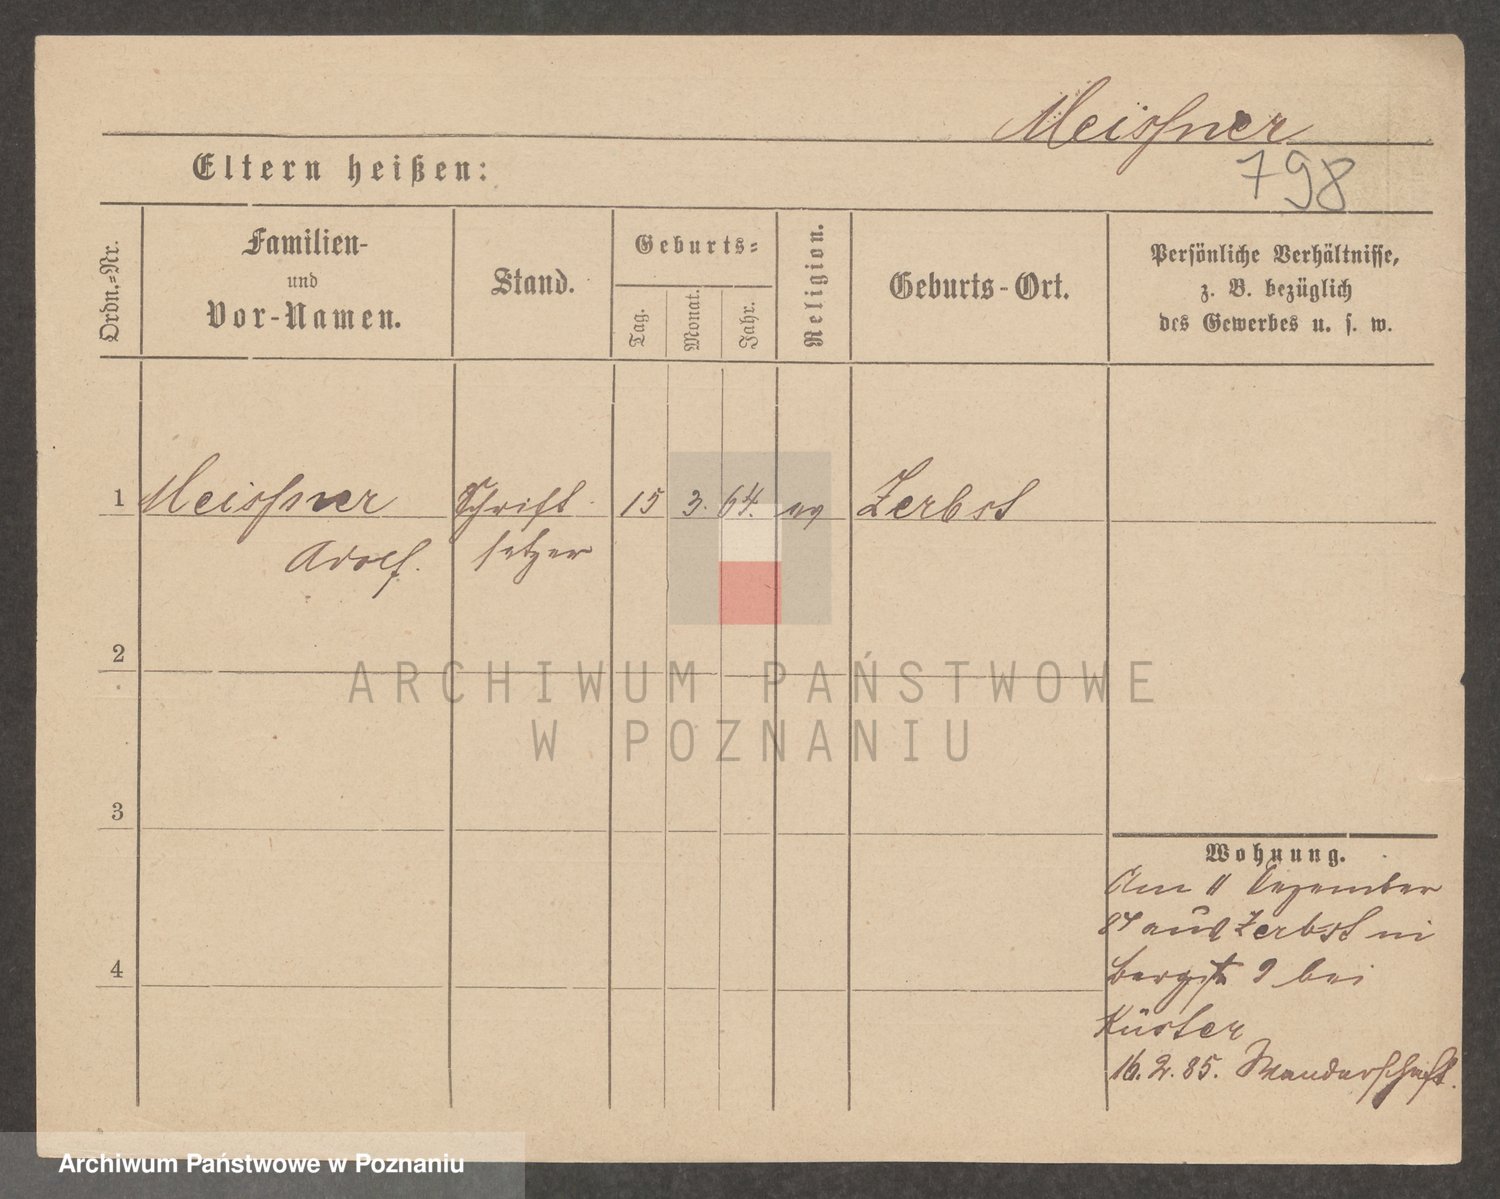 Meissner
Eltern heißen:
798
Ordn.=Nr.
Familien-
und
Vor-Namen.
Stand.
Geburts=
Tag.
Monat.
Jahr.
Religion.
Geburts-Ort.
Persönliche Verhältnisse,
z. B. bezüglich
des Gewerbes u. s. w.
1 Meissner Schrift- 15 3. 64. ev Zerbst
Adolf. setzer
2
ARCHIWUM PAŃSTWOWE
W POZNANIU
3
Wohnung.
Am 11 Dezember
84 aus Zerbst in
4
Bergst 9 bei
Küster
16.2.85. Wanderschaft.
Archiwum Państwowe w Poznaniu